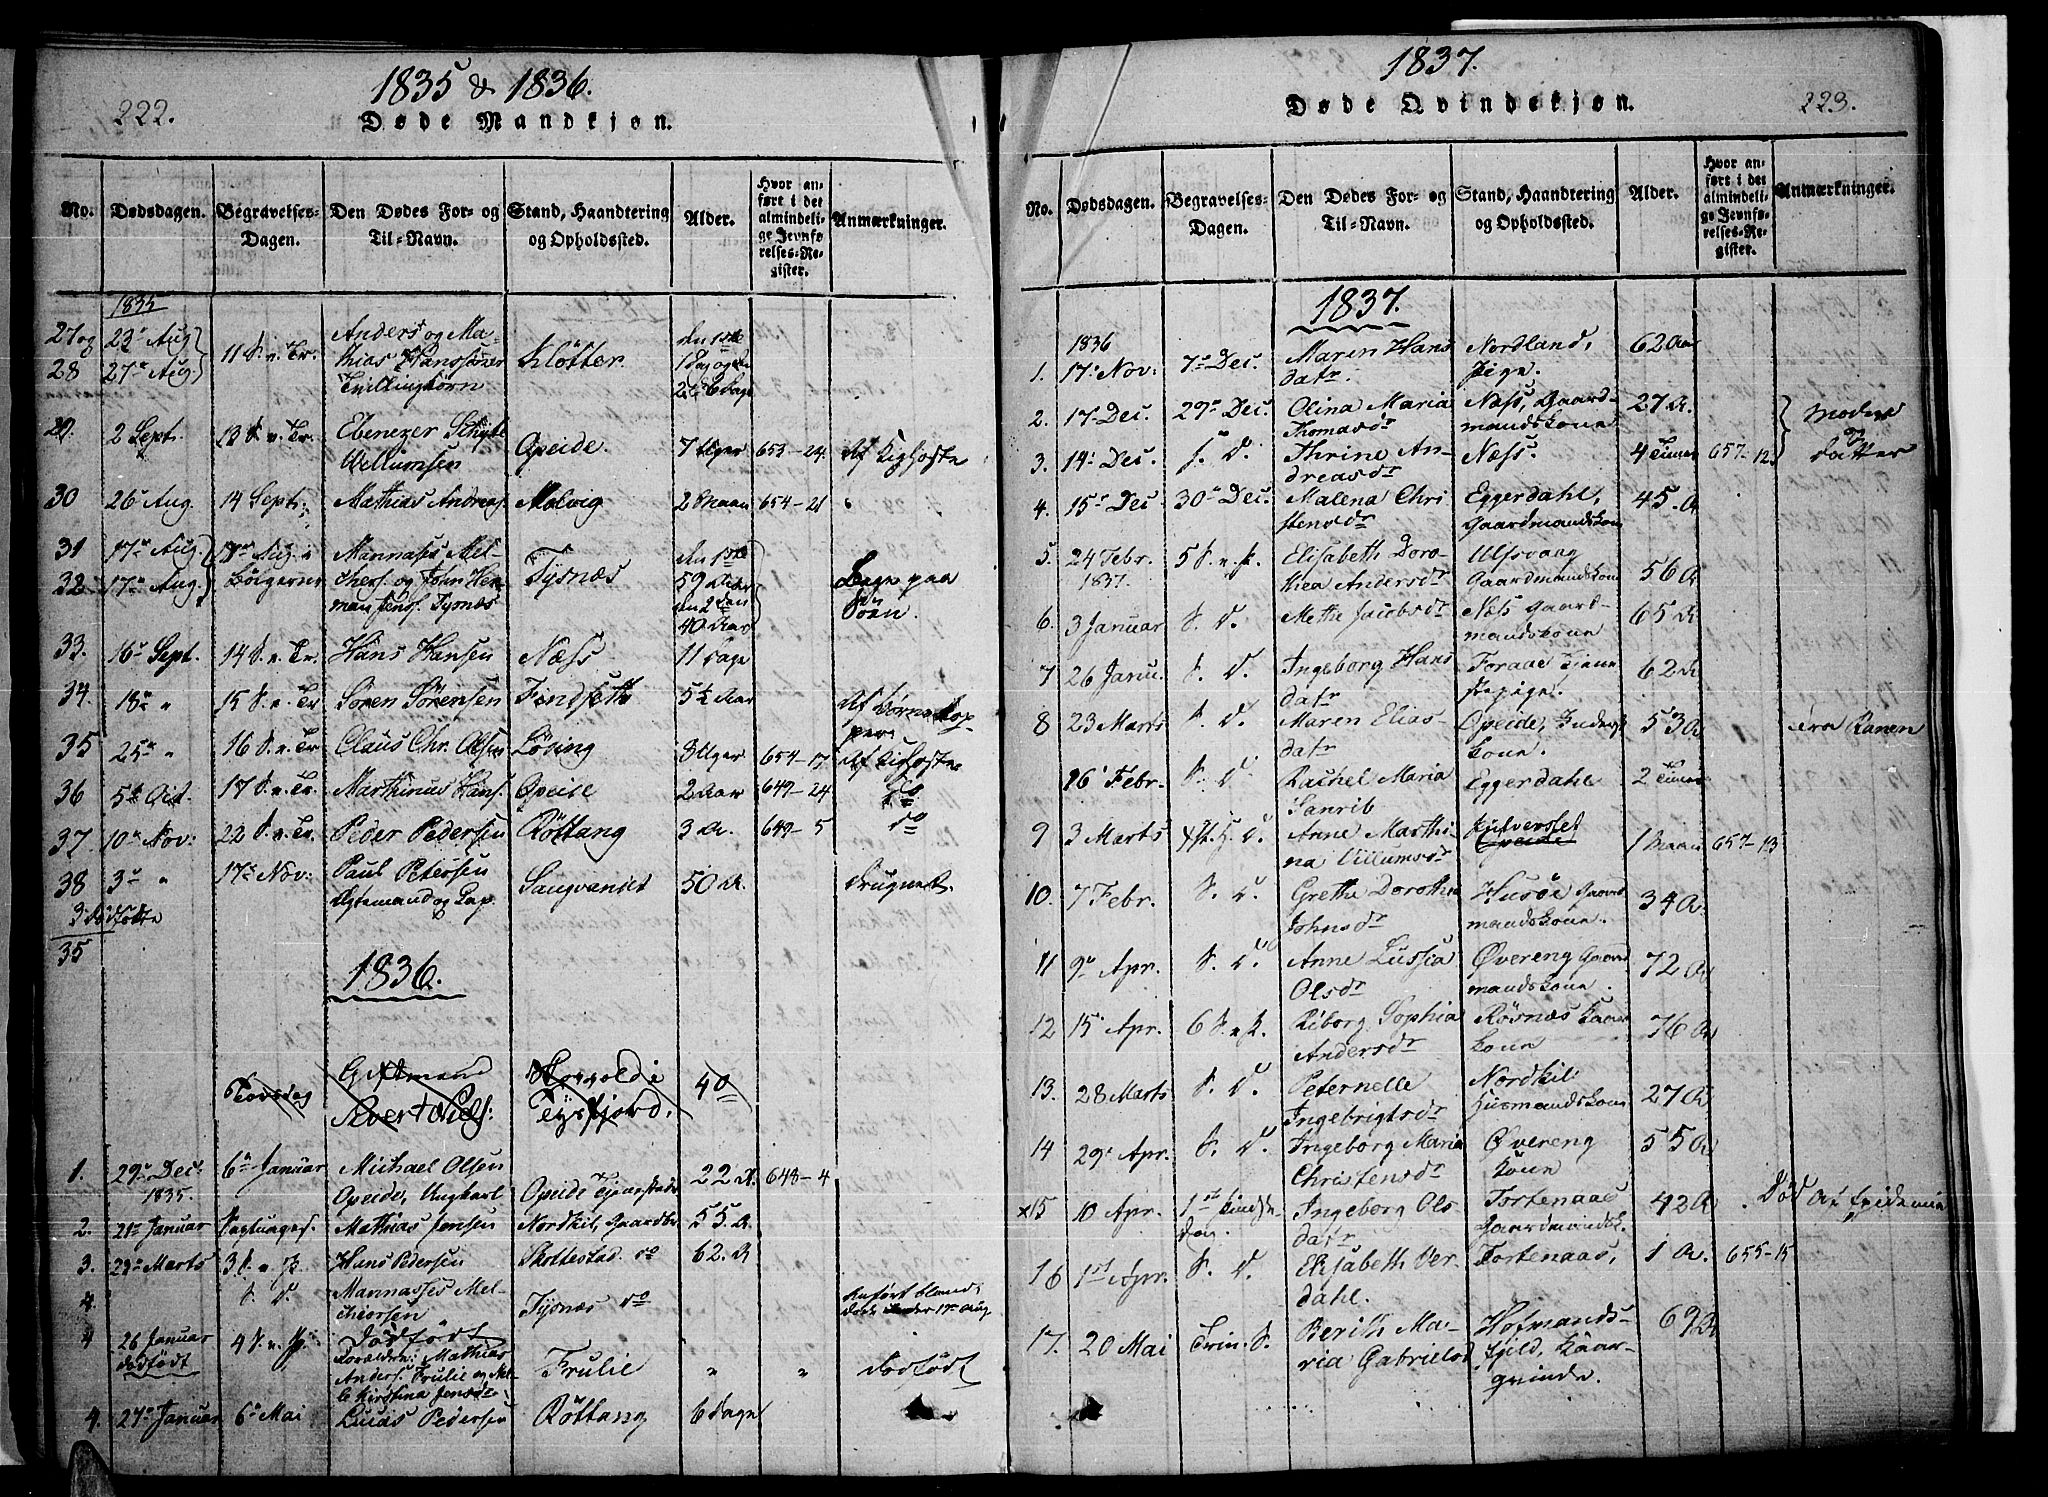 1835 & 1836.
222.
Døde Mandkjøn.
No.
Dødsdagen.
Begravelses-
Dagen.
Den Dødes For- og
Til-Navn.
Stand, Haandtering
og Opholdssted.
Alder.
Hvor an-
ført i det
almindeli-
ge Jevnfø-
relses-Re-
gister.
Anmærkninger.
1835
27 og 23 Aug
28 27 Aug
11 S. e. Tr.
Anders og Ma-
thias Hanssønner
Tvillingbörn
Kløtter.
den 1ste
1 Dag og den
2den 6 Dage
29. 2 Sept. 13 S. e. Tr. Ebenezer Schytte
Willumsen
Opeide. 7 Uger 653-24. Af Kighoste
30 26 Aug. 14 Sept: Mathias Andreas. Molvig 2 Maan 654-21
31 17 Aug.
32 17 Aug.
Mannases Mel-
chers. og John Her-
mansens. Tysnæs
Tysnæs
den 1ste
59 Aar
den 2den
40 Aar
Begge paa
Söen.
33. 16 Sept. 14 S. e. Tr. Hans Hansen Næss 11 Dage
34. 18 " 15 S. e. Tr Søren Sørensen Findseth 5½ Aar Af Børnekop-
per.
35 25 " 16 S. e. Tr Claus Chr. Olsen Løsing 8 Uger 654-17 Af Kighoste
36 5 Oct. 17 S. e. Tr. Marthinus Hans. Opeide 2 Aar 649-24 do
37. 10 Nov: 22 S. e. Tr. Peder Pedersen Röttang 3 A. 649-5 do
38 3 " 17 Nov: Paul Petersen
Ægtemand og Lap.
50 A. druknet.
3 dødfødte
35
1836.
Giftmand
Sivert Niels:
Korsvold i
Tysfjord.
40
1. 29 Dec:
1835.
6 Januar Michael Olsen
Opeide, Ungkarl
Opeide 22 A. 648-4
2. 21 Januar Mathias Jensen Nordkil, Gaardbr. 55. A
3. 23 Marts 3 S. e. P Hans Pedersen Skottestad do 62. A
4. S. D. Mannasses Mel-
chiorsen
Tysnæs do
Anført bland
døde under 17 Aug
4 26 Januar
dødfödt
4 S. e. P. Dödfödt
Forældre: Mathias
Anders. Frulie og
Kirstina Jensdr
Frulie " " dodfödt
4. 27 Januar 6 Mai Lucas Pedersen Röttang 6 dage
1837.
Døde Qvindekjøn.
223.
No.
Dødsdagen.
Begravelses-
Dagen.
Den Dødes For- og
Til-Navn.
Stand, Haandtering
og Opholdssted.
Alder.
Hvor an-
ført i det
almindeli-
ge Jevnfø-
relses-Re-
gister.
Anmærkninger.
1837.
1836
1. 17 Nov: 7 Dec. Maren Hans
datr.
Nordland,
pige.
62 Aar
2. 17 Dec. 29 Dec. Olina Maria
Thomasdr
Næss, Gaard-
mandskone
27 A.
3. 14 Dec. s. D. Thrine An-
dreasdr
Næss. 4 Timer 657-12
Moder
og
datter
4. 15 Dec 30 Dec. Malena Chri
stensdr
Eggerdahl,
Gaardmandskone
45. A
5. 24 Febr.
1837.
5 S. e. P. Elisabeth Doro-
thea Andersdr
Ulfsvaag
Gaardmandskone
56 A
6. 3 Januar S. D. Methe Jacobsdr Næss Gaard-
mandskone
65 A
7 26 Janu. S. D. Ingeborg Hans
datr
Foraae tjene
stepige.
62 A
8 23 Marts S. D. Maren Elias-
datr
Opeide, Inders
kone.
53 A Fra Ranen
16 Febr. S. D. Rachel Maria
Sanrib
Eggerdahl 2 Timer
9 3 Marts S. D. Anne Marthi-
na Villumsdr
Opeide
1 Maan 657-13
10. 7 Febr. S. D. Grethe Dorothea
Johnsdr
Husöe Gaard
mandskone.
34 A.
11 9 Apr. S. D. Anne Lussia
Olsdr
Øvereng Gaard
mandskone.
72 A
12 15 Apr. 6 S. e. P. Riborg Sophia
Andersdr
Røsnæs
kone
76 A
13. 28 Marts S. D. Peternelle
Ingebrigtsdr
Nordkil
Husmandskone
27 A
14 29 Apr. S. D. Ingeborg Maria
Christensdr
Øvereng
kone
55 A
x15 10 Apr. 1ste Pindse
dag.
Ingeborg Ols
datr
Tortenaas
Gaardmandsk.
42 A Död af Epidemie
16 1st Apr. S. D. Elisabeth Ver
dahl.
Tortenaas, 1 A. 655-15
17. 20 Mai Trin. S. Berith Ma-
ria Gabrielsd
Hofmands-
fjeld, Kaar-
qvinde.
69 A